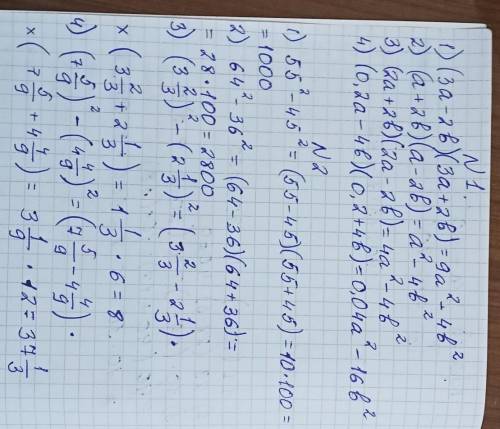 N 1.
1) (3a-2b)(3a+2b)=9a²-4b²
2) (a+2b)(a-2b)=a²-4b²
3) (2a+2b)(2a-2b)=4a²-4b²
4) (0,2a-4b)(0,2+4b)=0,04a²-16b²
N 2
1) 55²-45²=(55-45)(55+45)=10·100=
=1000
2) 64²-36²=(64-36)(64+36)=
=28·100=2800
3) (3 2/3)²-(2 1/3)²=(3 2/3-2 1/3)·
×(3 2/3+2 1/3)=1 1/3·6=8
4) (7 5/9)²-(4 4/9)²=(7 5/9-4 4/9)·
×(7 5/9+4 4/9)=3 1/9·12=37 1/3